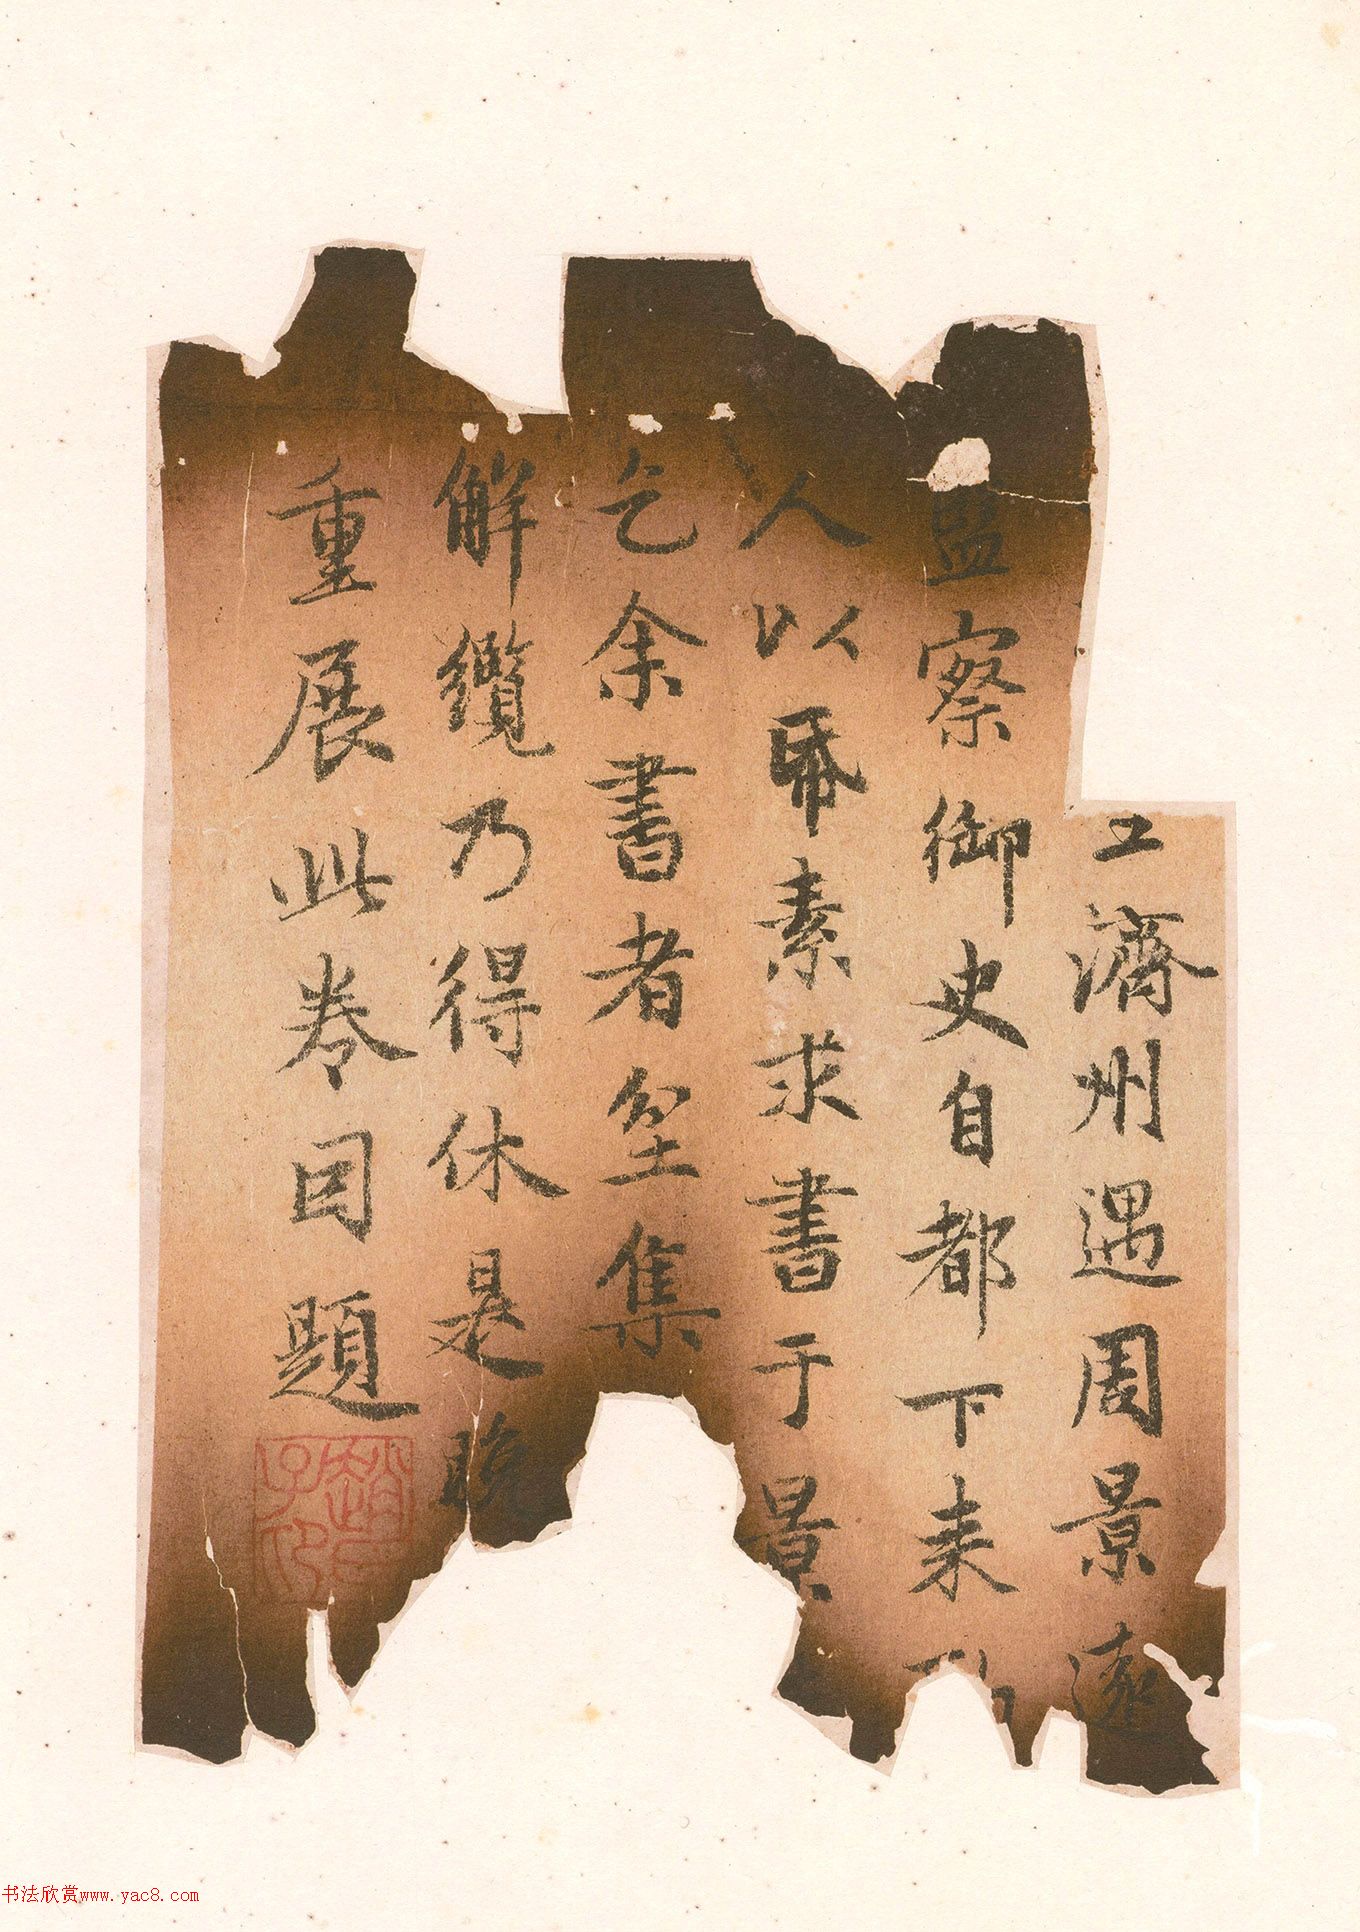 工濟州遇周景遠
監察御史自都下来
人以帋素求書于景
乞余書者坌集
解纜乃得休是晚
重展此卷因題
趙氏子昂
书法欣赏www.yac8.com